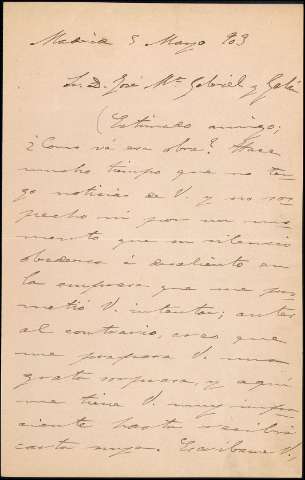 Madrid 5 Mayo 903
Sr. D. José Mª Gabriel y Galán
Estimado amigo;
¿Como vá esa obra? Hace
mucho tiempo que no ten-
go noticias de V. y no sos-
pecho ni por un mo-
mento que su silencio
obedezca á desaliento en
la empresa que me pro-
metió V. intentar; antes
al contrario, creo que
me prepara V. una
grata sorpresa, y aquí
me tiene V. muy impa-
ciente hasta recibir
carta suya. Escribame V.